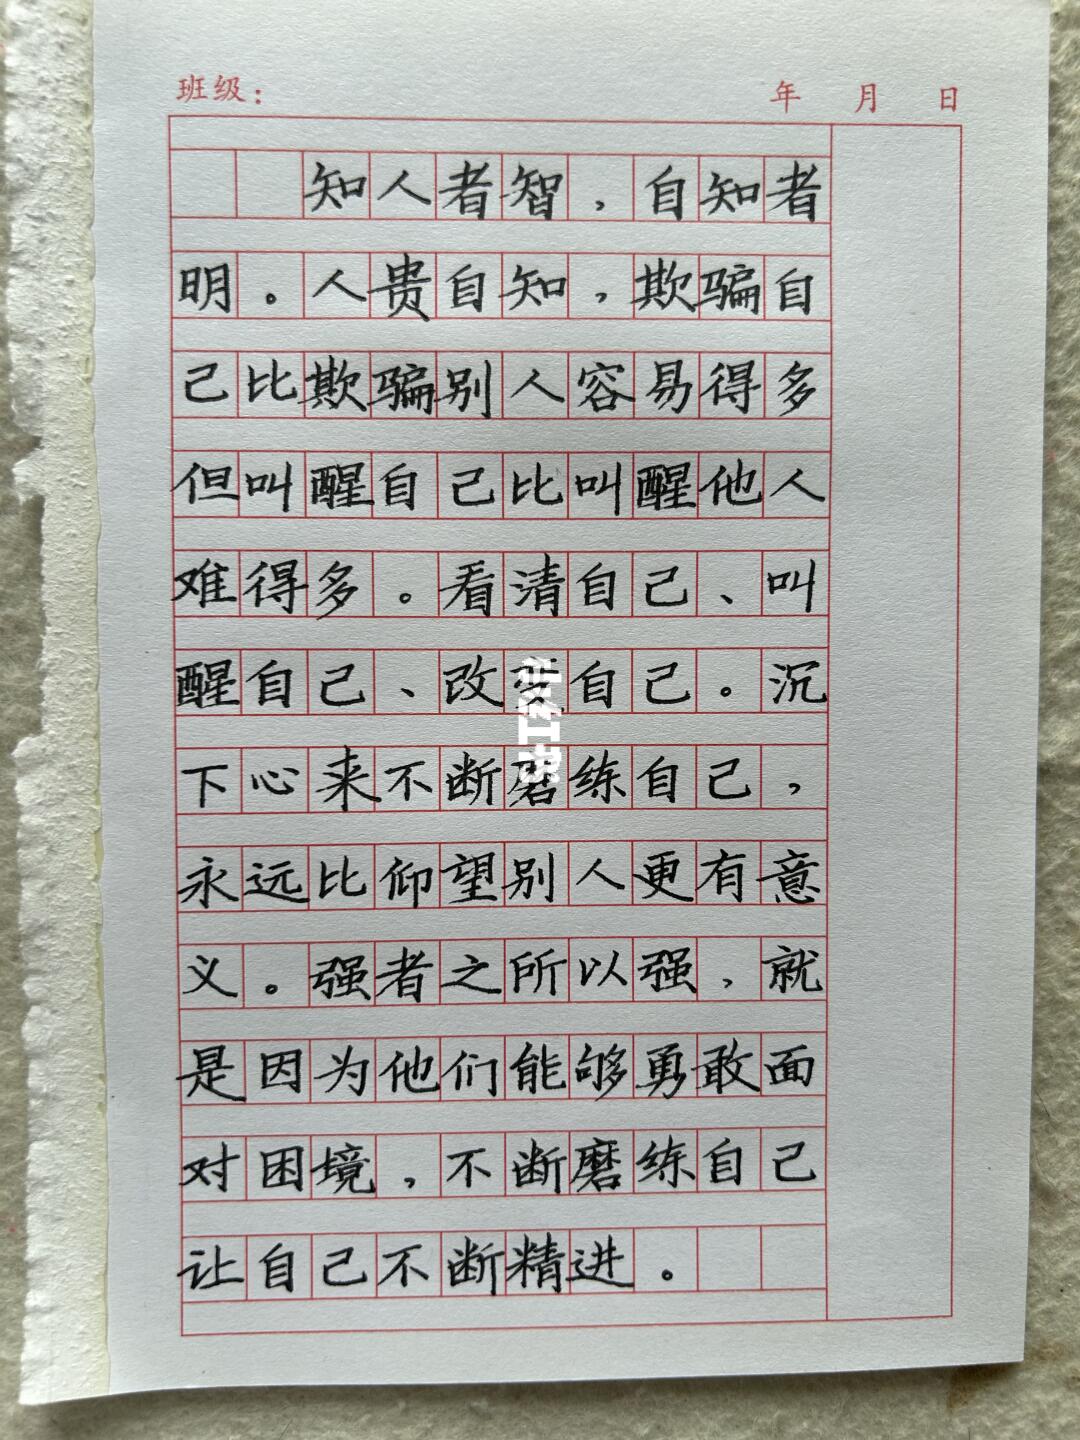 班级：
年 月 日
知人者智，自知者
明。人贵自知，欺骗自
己比欺骗别人容易得多
但叫醒自己比叫醒他人
难得多。看清自己、叫
醒自己、改变自己。沉
下心来不断磨练自己，
永远比仰望别人更有意
义。强者之所以强，就
是因为他们能够勇敢面
对困境，不断磨练自己
让自己不断精进。